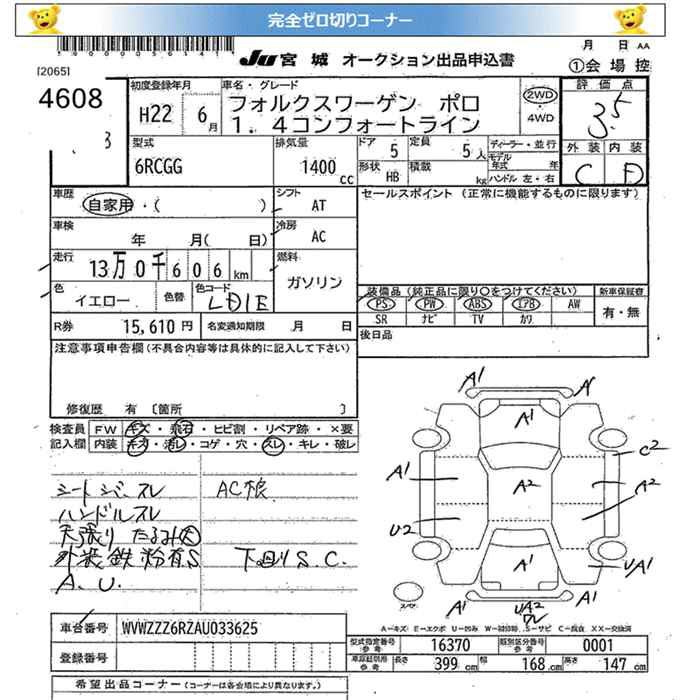 完全ゼロ切りコーナー
JU宮城 オークション出品申込書
月 日 AA
[2065]
①会場控
4608
初度登録年月
H22 6月
車名・グレード
フォルクスワーゲン ポロ
1.4コンフォートライン
2WD
・4WD
評価点
3.5
外装 内装
C D
型式
6RCGG
排気量
1400cc
ドア 5
定員 5人
形状 HB
積載 kg
ディーラー・並行
モデル年式 年
ハンドル 左・右
車歴
自家用・( )
シフト AT
セールスポイント (正常に機能するものに限ります)
車検
年 月( 日)
冷房 AC
走行
13万0千606km
燃料
ガソリン
色 イエロー
色替
色コード LD1E
装備品 (純正品に限り○をつけてください)
新車保証書
PS PW ABS エアB AW
SR ナビ TV カワ
有・無
R券 15,610円
名変通知期限 月 日
後日品
注意事項申告欄 (不具合内容等は具体的に記入して下さい)
修復歴 有 [箇所 ]
検査員記入欄
FW キズ・飛石・ヒビ割・リペア跡・×要
内装 キズ・汚レ・コゲ・穴・スレ・キレ・破レ
シートシミ、スレ
ハンドルスレ
天張り たるみ大
外装鉄粉有S
A.U.
下回りS.C.
A1
A1
A1
A2
A1
U2
C2
A2
UA1
A1
A1
UA2
A1
A-キズ E-エクボ U-凹み S-サビ C-腐食 XX-交換済
車台番号 WVWZZZ6RZAU033625
登録番号
型式指定番号 参考 16370
類別区分番号 参考 0001
長さ 399cm 幅 168cm 高さ 147cm
希望出品コーナー (コーナーは各会場により異なります。)